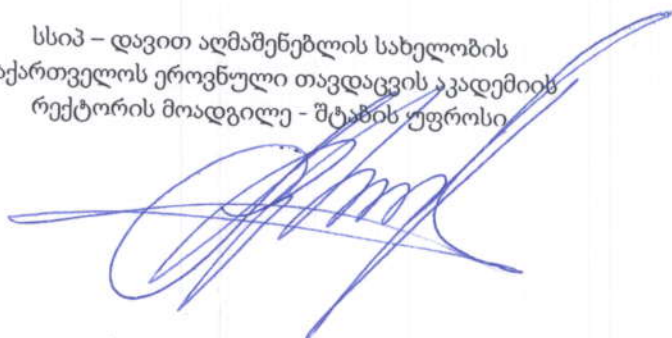 სსიპ – დავით აღმაშენებლის სახელობის
აქართველოს ეროვნული თავდაცვის აკადემიის
რექტორის მოადგილე - შტაბის უფროსი